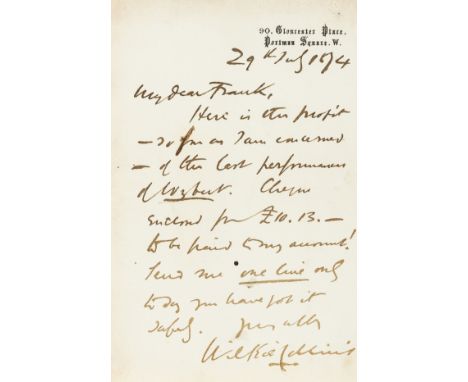 90. Gloucester Place,
Portman Square. W.
29th July 1874
My dear Frank,
Here is the profit
— so far as I am concerned
— of the last performances
of Wybert. Cheque
enclosed for £10.13.—
to be paid to my account!
Send me one line only
to say you have got it
safely. Yrs affly
Wilkie Collins